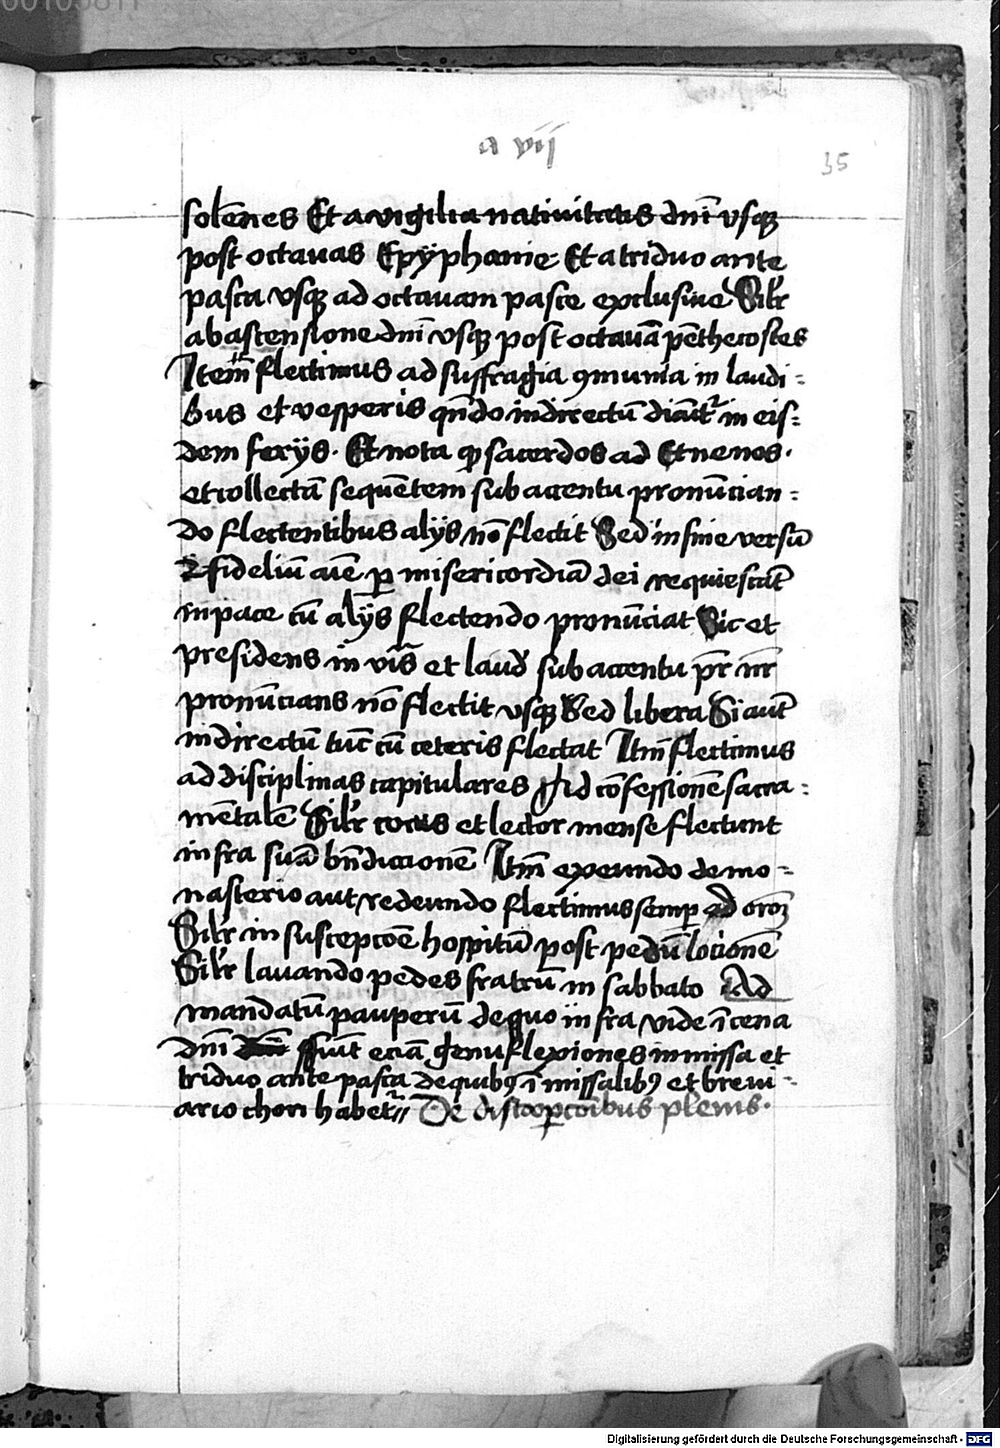 00105811
a vij
35
solēnes Et a vigilia nativitatis dnī vsq̨
post octauas Epyphanie Et a triduo ante
pasca vsq̨ ad octauam pasce exclusiue Silr
ab ascensione dnī vsq̨ post octauā pēthecostes
Itēm flectimus ad suffragia ꝯmunia in laudi-
bus et vesperis qn̄do indirectū diāntr in eis-
dem ferijs. Et nota ꝙ sacerdos ad Et ne nos.
et collectā sequētem sub accentu pronūcian-
do flectentibus alijs nō flectit Sed in fine versū
fideliū aīe ꝑ misericordiā dei requiescāt
in pace cū alijs flectendo pronūciat Sic et
presidens in vīs et laud sub accentu pr̄ nr̄
pronūcians nō flectit vsq̨ Sed libera Si aut̄
indirectū tūc cū ceteris flectat Itm̄ flectimus
ad disciplinas capitulares Ad cōfessionē sacra-
mētalē Silr cocus et lector mense flectunt
infra suā bn̄diccionē Itm̄ exeundo de mo-
nasterio aut redeundo flectimus semꝑ ad orōꝫ
Silr in suscepcōe hospitū post pedū locionē
Silr lauando pedes fratrū in sabbato Ad
mandatū pauperū de quo infra vide ī cena
dnī ffiūt eciā genuflexiones in missa et
triduo ante pasca de quibꝯ ī missalibꝯ et brevi-
ario chori habetr// De discoopercōibus plenis.
Digitalisierung gefördert durch die Deutsche Forschungsgemeinschaft - DFG